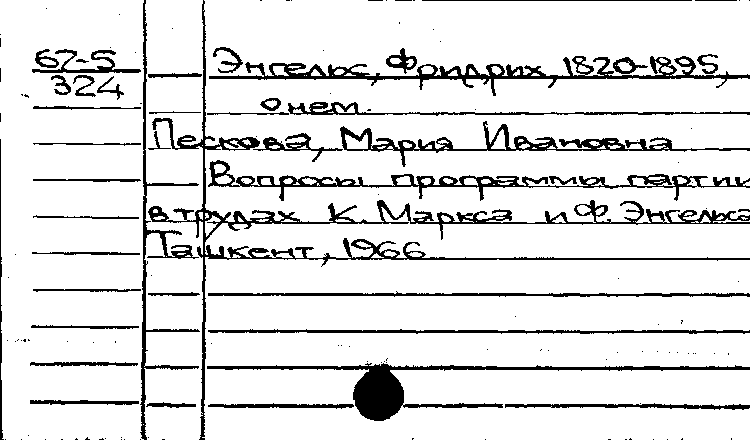 67-5
324
Энгельс, Фридрих, 1820-1895,
о нем.
Пескова, Мария Ивановна
Вопросы программы партии
в трудах К. Маркса и Ф. Энгельса
Ташкент, 1966